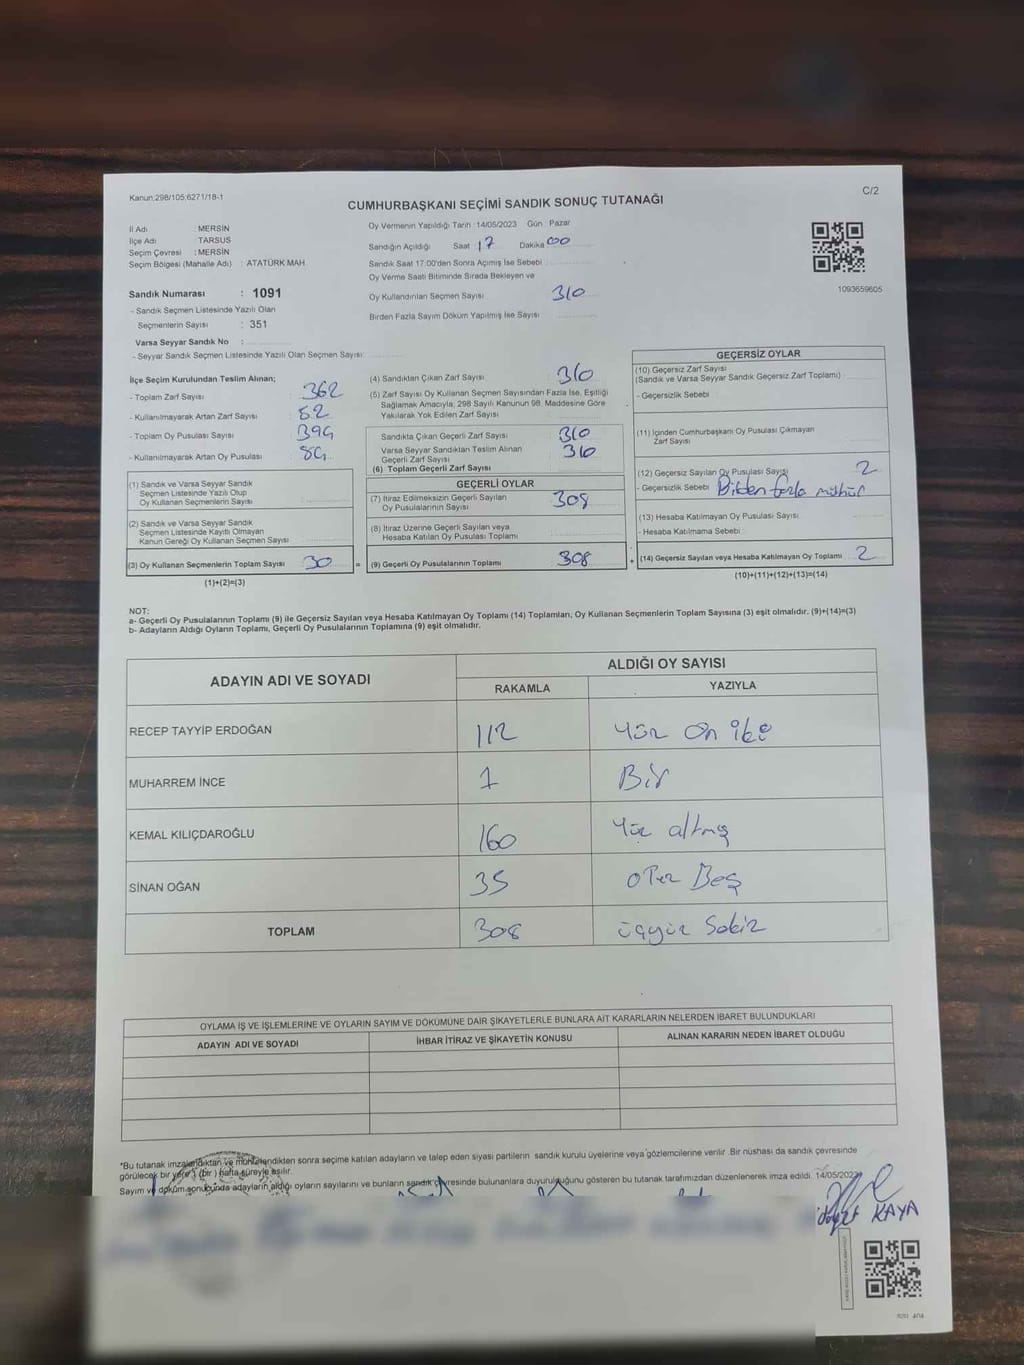 Kanun:298/105;6271/18-1
C/2
CUMHURBAŞKANI SEÇİMİ SANDIK SONUÇ TUTANAĞI
İl Adı : MERSİN
İlçe Adı : TARSUS
Seçim Çevresi : MERSİN
Seçim Bölgesi (Mahalle Adı) : ATATÜRK MAH
Sandık Numarası : 1091
- Sandık Seçmen Listesinde Yazılı Olan
Seçmenlerin Sayısı : 351
Varsa Seyyar Sandık No :
- Seyyar Sandık Seçmen Listesinde Yazılı Olan Seçmen Sayısı :
Oy Vermenin Yapıldığı Tarih : 14/05/2023 Gün : Pazar
Sandığın Açıldığı Saat : 17 Dakika : 00
Sandık Saat 17:00'den Sonra Açımış İse Sebebi :
Oy Verme Saati Bitiminde Sırada Bekleyen ve
Oy Kullandırılan Seçmen Sayısı 310
Birden Fazla Sayım Döküm Yapılmış İse Sayısı
1093659605
İlçe Seçim Kurulundan Teslim Alınan;
- Toplam Zarf Sayısı : 362
- Kullanılmayarak Artan Zarf Sayısı : 52
- Toplam Oy Pusulası Sayısı : 394
- Kullanılmayarak Artan Oy Pusulası : 84
(1) Sandık ve Varsa Seyyar Sandık
Seçmen Listesinde Yazılı Olup
Oy Kullanan Seçmenlerin Sayısı :
(2) Sandık ve Varsa Seyyar Sandık
Seçmen Listesinde Kayıtlı Olmayan
Kanun Gereği Oy Kullanan Seçmen Sayısı :
(3) Oy Kullanan Seçmenlerin Toplam Sayısı 30
(1)+(2)=(3)
(4) Sandıktan Çıkan Zarf Sayısı : 310
(5) Zarf Sayısı Oy Kullanan Seçmen Sayısından Fazla İse, Eşitliği
Sağlamak Amacıyla, 298 Sayılı Kanunun 98. Maddesine Göre
Yakılarak Yok Edilen Zarf Sayısı :
Sandıkta Çıkan Geçerli Zarf Sayısı 310
Varsa Seyyar Sandıktan Teslim Alınan
Geçerli Zarf Sayısı : 310
(6) Toplam Geçerli Zarf Sayısı
GEÇERLİ OYLAR
(7) İtiraz Edilmeksizin Geçerli Sayılan
Oy Pusulalarının Sayısı : 308
(8) İtiraz Üzerine Geçerli Sayılan veya
Hesaba Katılan Oy Pusulası Toplamı
= (9) Geçerli Oy Pusulalarının Toplamı 308
GEÇERSİZ OYLAR
(10) Geçersiz Zarf Sayısı
(Sandık ve Varsa Seyyar Sandık Geçersiz Zarf Toplamı)
- Geçersizlik Sebebi :
(11) İçinden Cumhurbaşkanı Oy Pusulası Çıkmayan
Zarf Sayısı
(12) Geçersiz Sayılan Oy Pusulası Sayısı 2
- Geçersizlik Sebebi Birden fazla mühür
(13) Hesaba Katılmayan Oy Pusulası Sayısı
- Hesaba Katılmama Sebebi :
+ (14) Geçersiz Sayılan veya Hesaba Katılmayan Oy Toplamı 2
(10)+(11)+(12)+(13)=(14)
NOT:
a- Geçerli Oy Pusulalarının Toplamı (9) ile Geçersiz Sayılan veya Hesaba Katılmayan Oy Toplamı (14) Toplamları, Oy Kullanan Seçmenlerin Toplam Sayısına (3) eşit olmalıdır. (9)+(14)=(3)
b- Adayların Aldığı Oyların Toplamı, Geçerli Oy Pusulalarının Toplamına (9) eşit olmalıdır.
ADAYIN ADI VE SOYADI
ALDIĞI OY SAYISI
RAKAMLA YAZIYLA
RECEP TAYYİP ERDOĞAN 112 Yüz On iki
MUHARREM İNCE 1 Bir
KEMAL KILIÇDAROĞLU 160 Yüz altmış
SİNAN OĞAN 35 Otuz Beş
TOPLAM 308 üçyüz Sekiz
OYLAMA İŞ VE İŞLEMLERİNE VE OYLARIN SAYIM VE DÖKÜMÜNE DAİR ŞİKAYETLERLE BUNLARA AİT KARARLARIN NELERDEN İBARET BULUNDUKLARI
ADAYIN ADI VE SOYADI İHBAR İTİRAZ VE ŞİKAYETİN KONUSU ALINAN KARARIN NEDEN İBARET OLDUĞU
*Bu tutanak imzalandıktan ve mühürlendikten sonra seçime katılan adayların ve talep eden siyasi partilerin sandık kurulu üyelerine veya gözlemcilerine verilir. Bir nüshası da sandık çevresinde
görülecek bir yere 1 (bir) hafta süreyle asılır.
Sayım ve döküm sonucunda adayların aldığı oyların sayılarını ve bunların sandık çevresinde bulunanlara duyurulduğunu gösteren bu tutanak tarafımızdan düzenlenerek imza edildi. 14/05/2023
KAYA